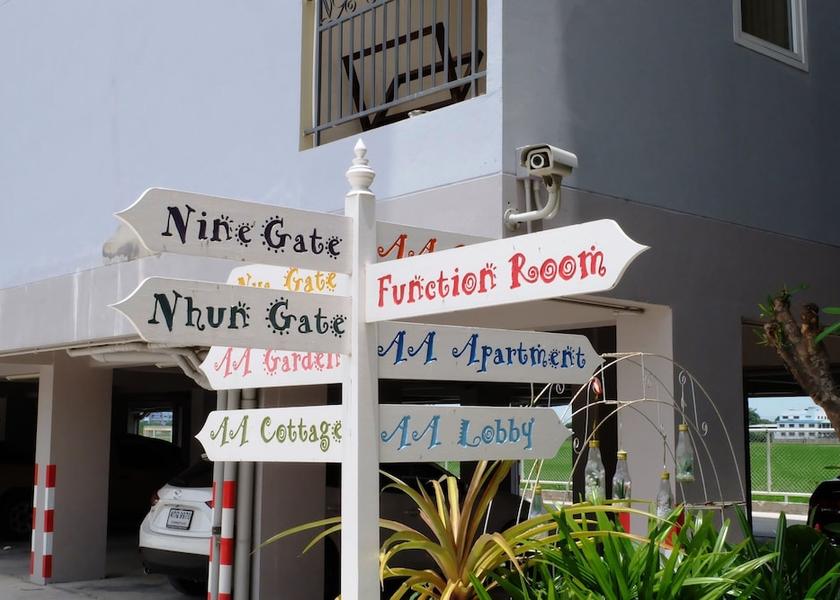 Nine Gate
AA
Function Room
Gate
Nhun Gate
AA Apartment
AA Garden
AA Cottage
AA Lobby